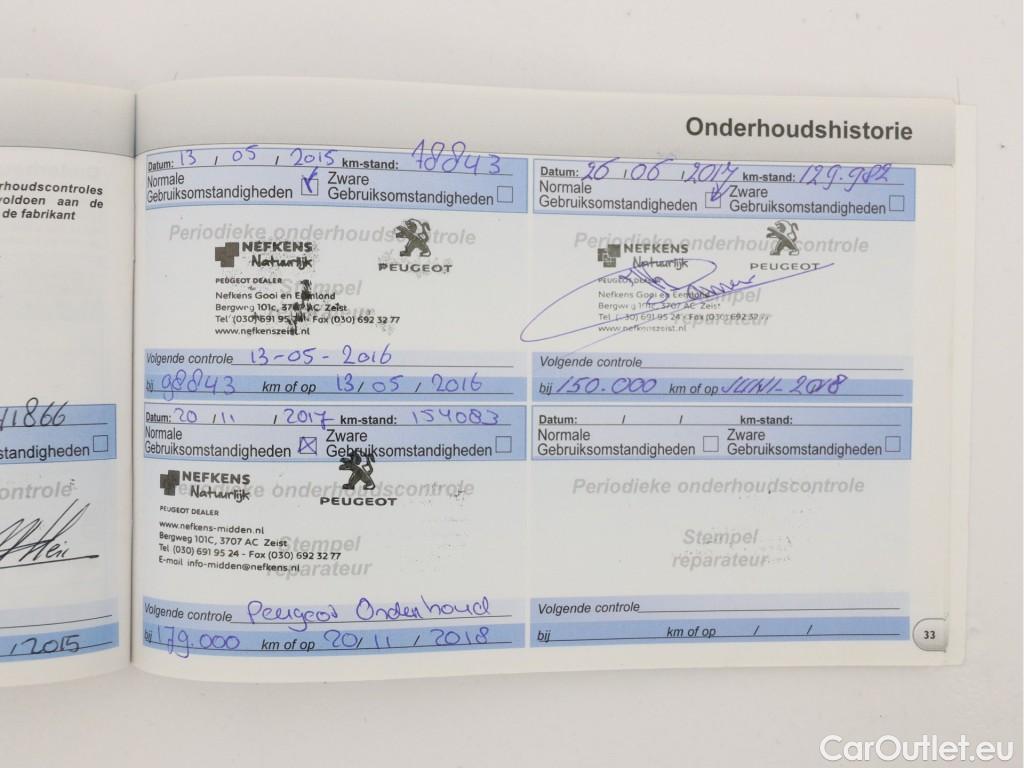 Onderhoudshistorie
rhoudscontroles
voldoen aan de
de fabrikant
Datum: 13 / 05 / 2015 km-stand: 78843
Normale Gebruiksomstandigheden
Zware Gebruiksomstandigheden
Periodieke onderhoudscontrole
NEFKENS
Natuurlijk
PEUGEOT
PEUGEOT DEALER
Stempel
reparateur
Nefkens Gooi en Eemland
Bergweg 101c, 3707 AC Zeist
Tel (030) 691 95 24 - Fax (030) 692 32 77
www.nefkenszeist.nl
Volgende controle 13-05-2016
bij 98843 km of op 13 / 05 / 2016
Datum: 26 / 06 / 2017 km-stand: 129.982
Normale Gebruiksomstandigheden
Zware Gebruiksomstandigheden
Periodieke onderhoudscontrole
NEFKENS
Natuurlijk
PEUGEOT
PEUGEOT DEALER
Stempel
reparateur
Nefkens Gooi en Eemland
Bergweg 101c, 3707 AC Zeist
Tel (030) 691 95 24 - Fax (030) 692 32 77
www.nefkenszeist.nl
Volgende controle
bij 150.000 km of op JUNI-2018
41866
standigheden
controle
/ 2015
Datum: 20 / 11 / 2017 km-stand: 154083
Normale Gebruiksomstandigheden
Zware Gebruiksomstandigheden
Periodieke onderhoudscontrole
NEFKENS
Natuurlijk
PEUGEOT
PEUGEOT DEALER
Stempel
reparateur
www.nefkens-midden.nl
Bergweg 101C, 3707 AC Zeist
Tel (030) 691 95 24 - Fax (030) 692 32 77
E-mail info-midden@nefkens.nl
Volgende controle Peugeot Onderhoud
bij 179.000 km of op 20 / 11 / 2018
Datum: / / km-stand:
Normale Gebruiksomstandigheden
Zware Gebruiksomstandigheden
Periodieke onderhoudscontrole
Stempel
reparateur
Volgende controle
bij km of op / /
33
CarOutlet.eu